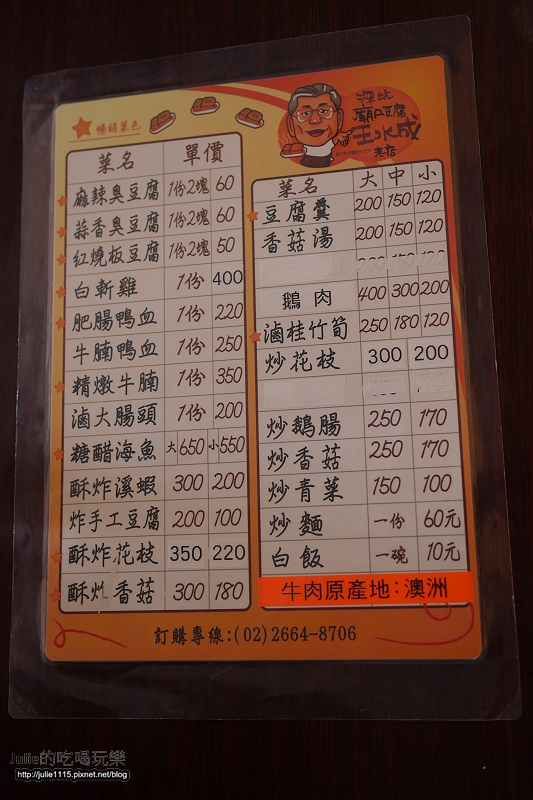 暢銷菜色
深坑
廟口豆腐
王水成
老店
菜名 單價
麻辣臭豆腐 1份2塊 60
蒜香臭豆腐 1份2塊 60
紅燒板豆腐 1份2塊 50
白斬雞 1份 400
肥腸鴨血 1份 220
牛腩鴨血 1份 250
精燉牛腩 1份 350
滷大腸頭 1份 200
糖醋海魚 大650 小550
酥炸溪蝦 300 200
炸手工豆腐 200 100
酥炸花枝 350 220
酥炸香菇 300 180
菜名 大 中 小
豆腐羹 200 150 120
香菇湯 200 150 120
鵝肉 400 300 200
滷桂竹筍 250 180 120
炒花枝 300 200
炒鵝腸 250 170
炒香菇 250 170
炒青菜 150 100
炒麵 一份 60元
白飯 一碗 10元
牛肉原產地:澳洲
訂購專線:(02)2664-8706
Julie的吃喝玩樂
http://julie1115.pixnet.net/blog